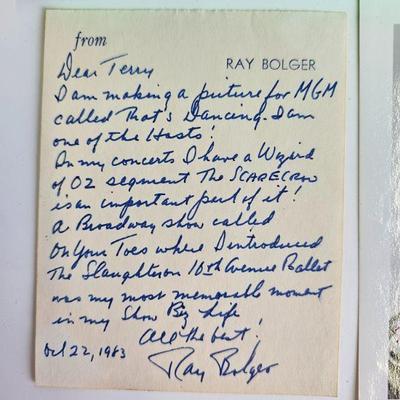 from
RAY BOLGER
Dear Terry
I am making a picture for MGM
called That's Dancing. I am
one of the Hosts!
In my concerts I have a Wizard
of Oz segment The SCARECROW
is an important part of it!
A Broadway show called
On Your Toes where I introduced
The Slaughter on 10th Avenue Ballet
was my most memorable moment
in my Show Biz Life
All the best!
Oct 22, 1983
Ray Bolger